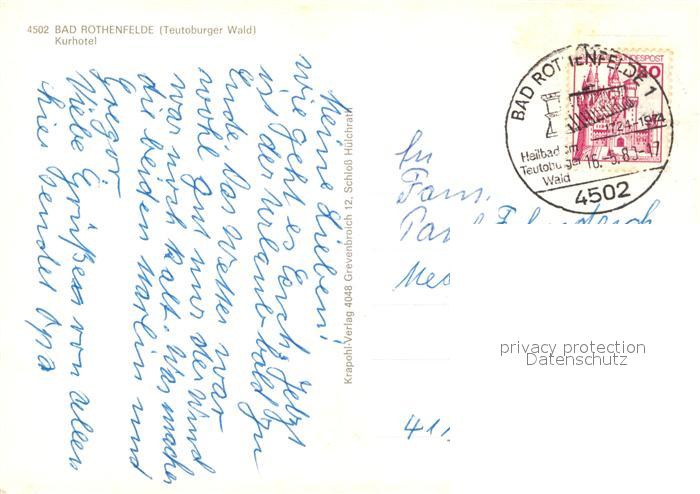 4502 BAD ROTHENFELDE (Teutoburger Wald)
Kurhotel
Meine Lieben!
wie geht es Euch? Jetzt
ist der Urlaub bald zu
Ende. Das Wetter war
wohl gut nur der Wind
war noch kalt. Was machen
die beiden Martin und
Gregor
Viele Grüßeas von allen
hier sendet Opa
Krapohl-Verlag 4048 Grevenbroich 12, Schloß Hülchrath
BAD ROTHENFELDE 1
1724-1974
Heilbad im
Teutoburger
Wald
16.-5.83-17
4502
BUNDESPOST
An
Fam.
41
privacy protection
Datenschutz